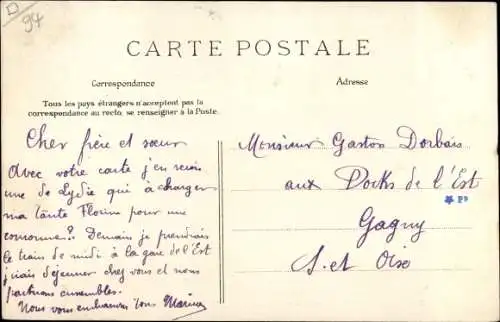 94
CARTE POSTALE
Correspondance
Adresse
Tous les pays étrangers n'acceptent pas la
correspondance au recto, se renseigner à la Poste.
Cher frère et sœur
Avec votre carte j'en reçois
une de Lydie qui a charger
ma tante Florine pour une
couronne? Demain je prendrais
le train de midi à la gare de l'Est
j'irais déjeuner chez vous et nous
partirons ensembles.
Nous vous embrassons tous
Monsieur Gaston Dorbais
aux Docks de l'Est
Gagny
S. et Oise